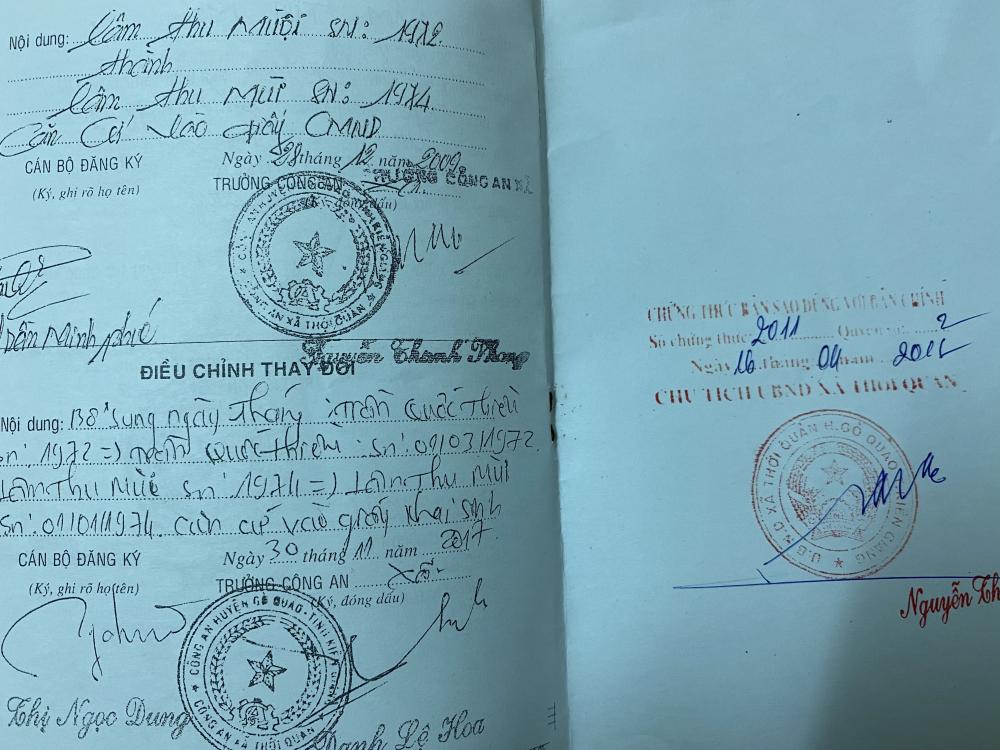 Nội dung: Lâm Thu Mười SN: 1972.
thành
Lâm Thu Mùi SN: 1974
Căn Cứ vào giấy CMND
CÁN BỘ ĐĂNG KÝ
(Ký, ghi rõ họ tên)
Ngày 28 tháng 12 năm 2009
TRƯỞNG CÔNG AN
TRƯỞNG CÔNG AN XÃ
(Ký, đóng dấu)
Minh phú
Nguyễn Thanh Phong
ĐIỀU CHỈNH THAY ĐỔI
Nội dung: Bổ sung ngày tháng Trần Quốc Thiện
sn: 1972 => Trần Quốc Thiện sn: 09/03/1972.
Lâm Thu Mùi sn: 1974 => Lâm Thu Mùi
sn: 01/01/1974 căn cứ vào giấy khai sinh
CÁN BỘ ĐĂNG KÝ
(Ký, ghi rõ họ tên)
Ngày 30 tháng 11 năm 2017.
TRƯỞNG CÔNG AN
(Ký, đóng dấu)
CÔNG AN HUYỆN GÒ QUAO - TỈNH
CÔNG AN XÃ THỚI QUẢN
Thị Ngọc Dung
Danh Lệ Hoa
CHỨNG THỰC BẢN SAO ĐÚNG VỚI BẢN CHÍNH
Số chứng thực 2011 Quyển số: 2
Ngày 16 tháng 04 năm
CHỦ TỊCH UBND XÃ THỚI QUẢN
U.B.N.D XÃ THỚI QUẢN H.GÒ QUAO KIÊN GIANG
Nguyễn